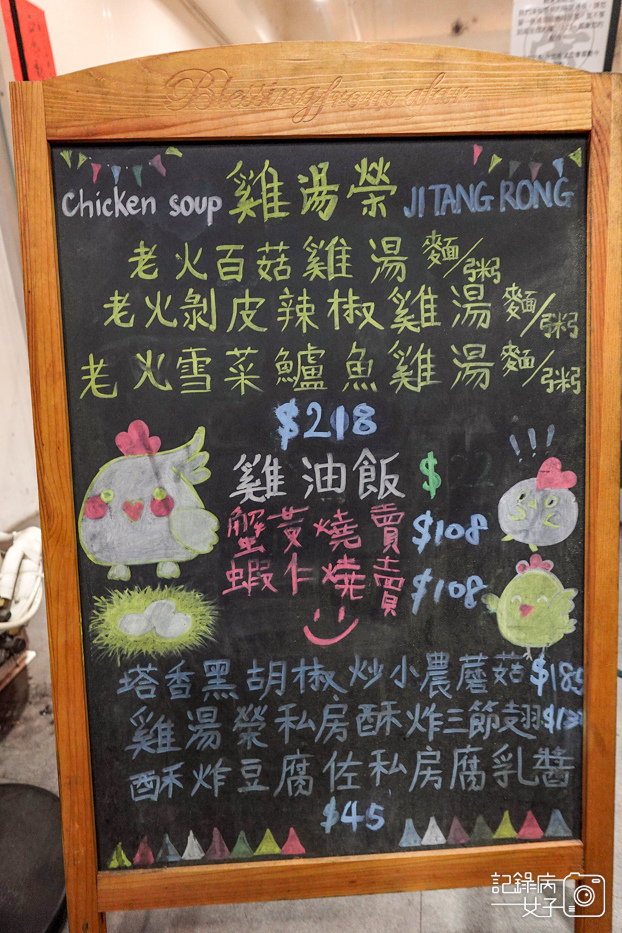 Blessing from afar
Chicken soup 雞湯榮 JI TANG RONG
老火百菇雞湯 麵/粥
老火剝皮辣椒雞湯 麵/粥
老火雪菜鱸魚雞湯 麵/粥
$218
雞油飯 $
蟹黃燒賣 $108
蝦仁燒賣 $108
塔香黑胡椒炒小農蘑菇 $185
雞湯榮私房酥炸三節翅
酥炸豆腐佐私房腐乳醬
$45
記錄病
女子